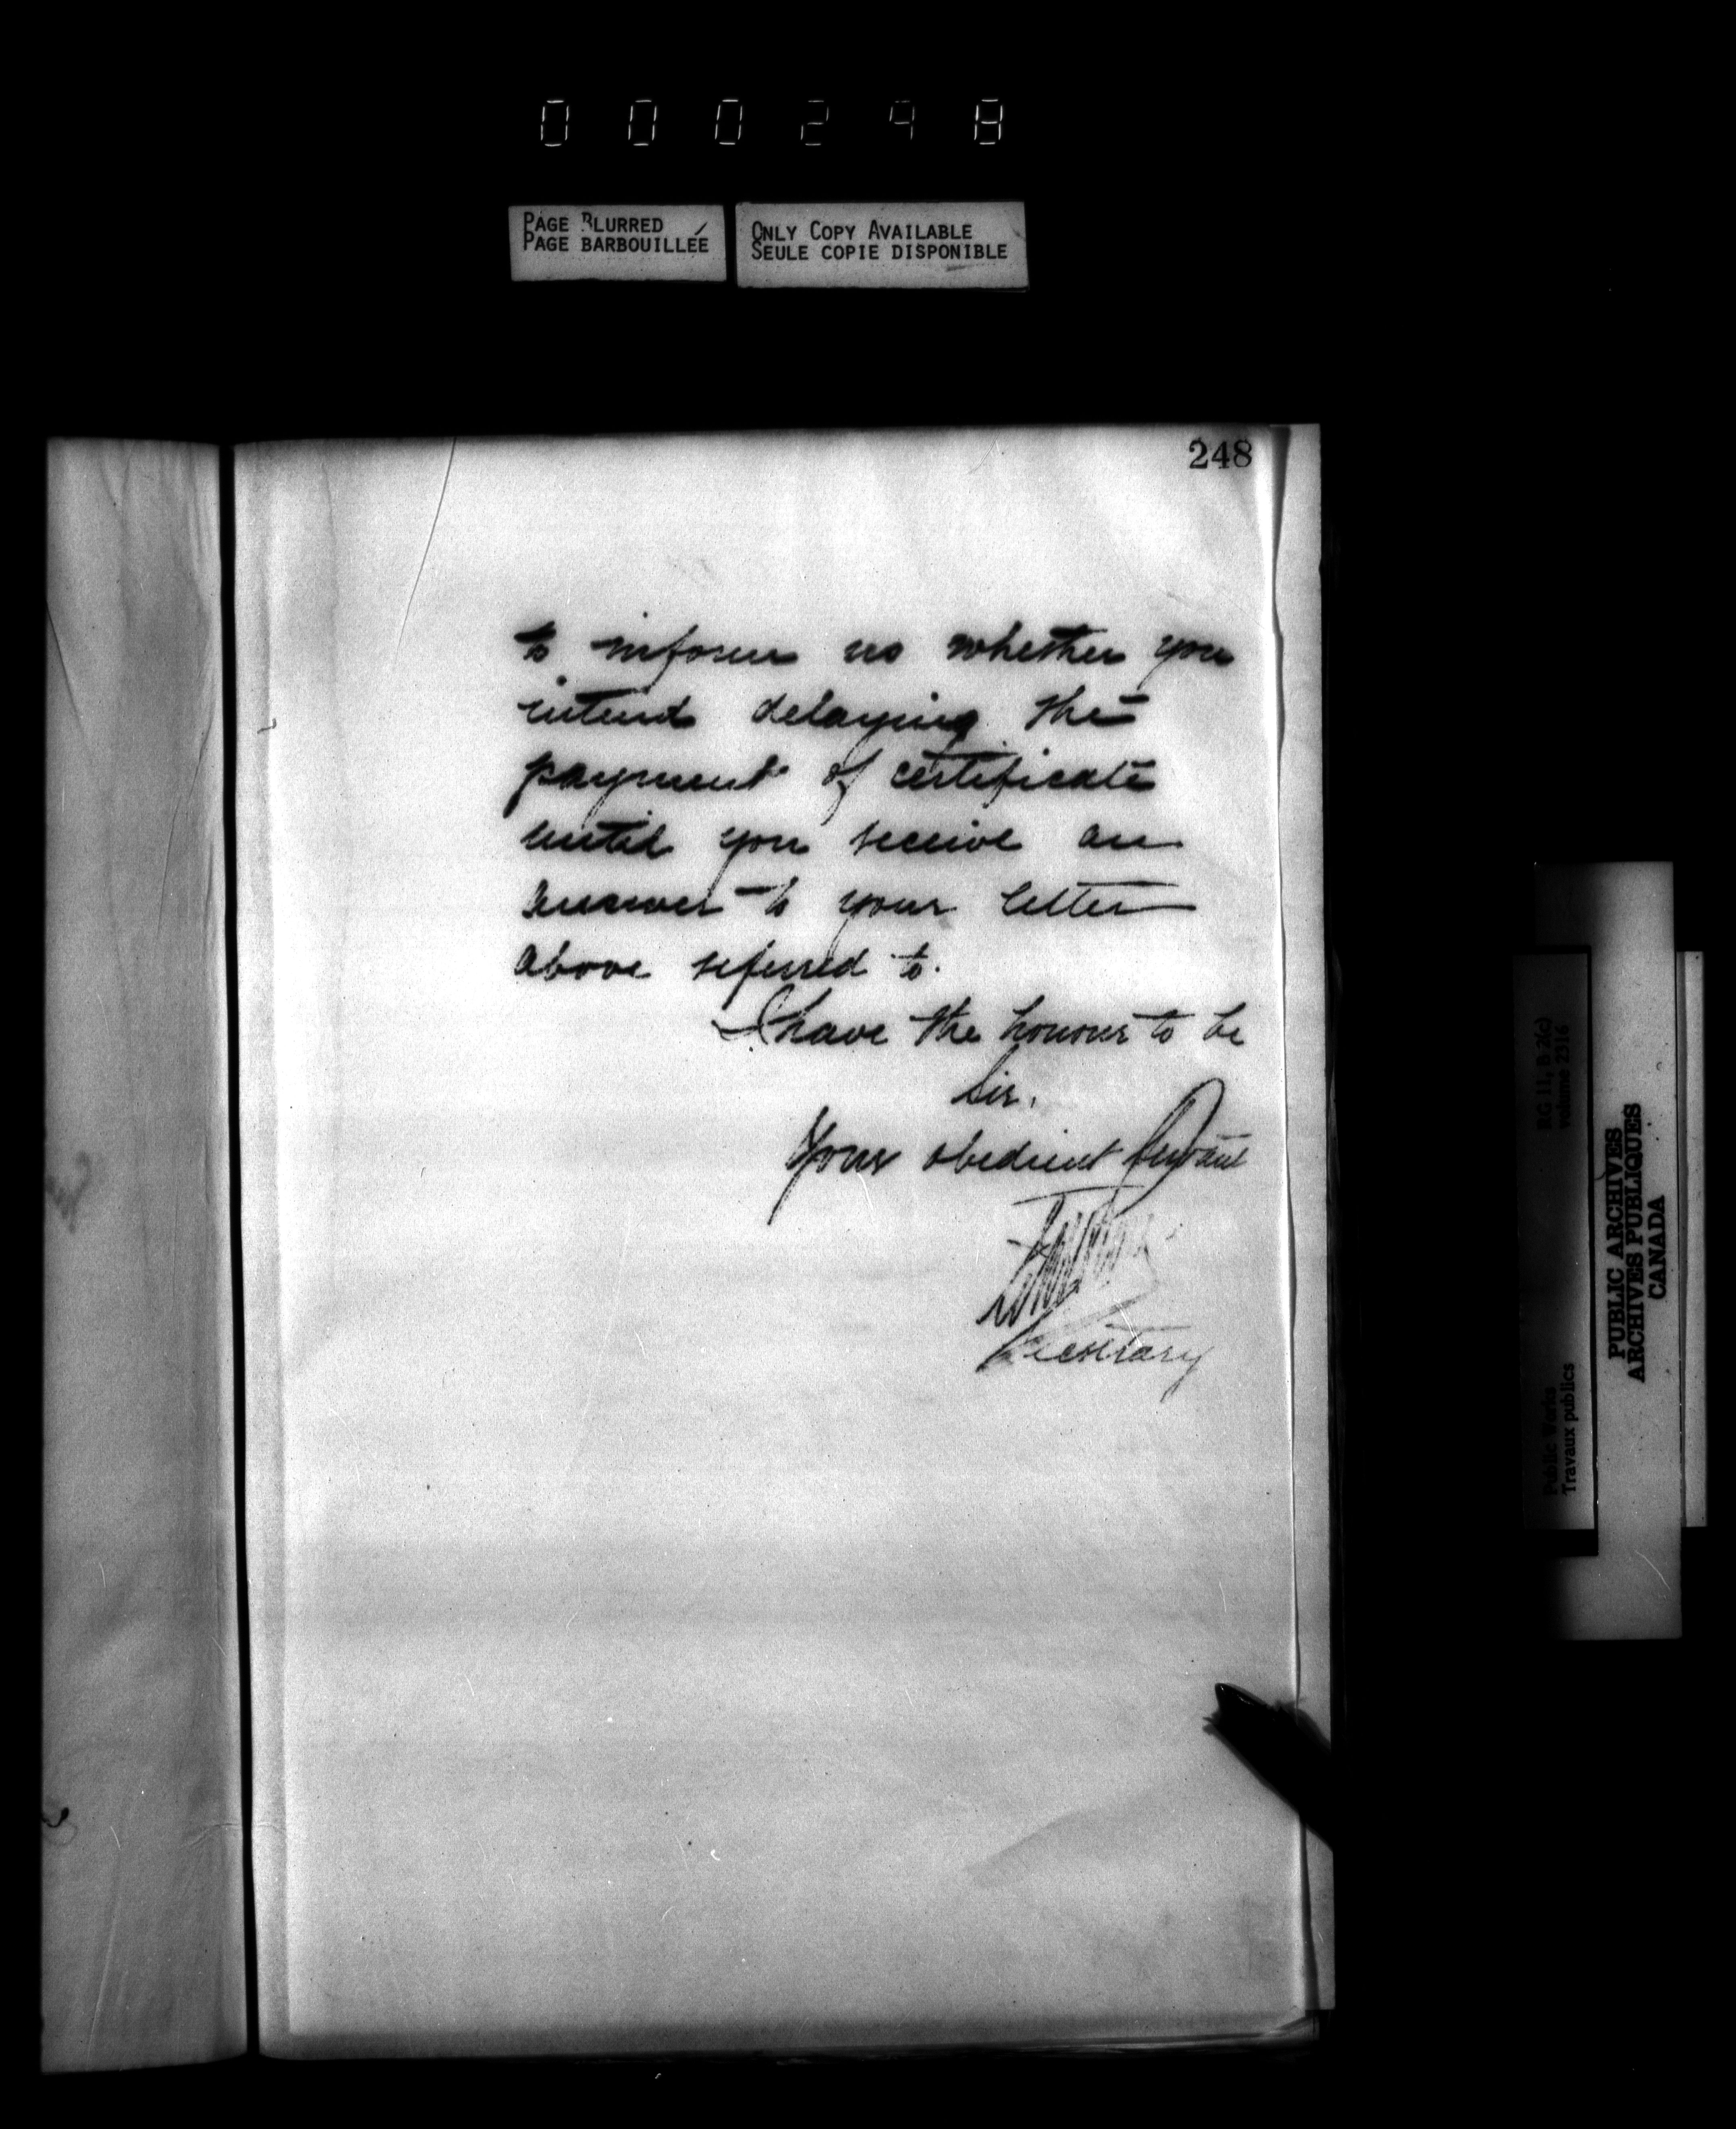 000248
PAGE BLURRED
PAGE BARBOUILLÉE
ONLY COPY AVAILABLE
SEULE COPIE DISPONIBLE
248
to inform us whether you
intend delaying the
payment of certificate
until you receive an
answer to your letter
above referred to.
I have the honour to be
Sir,
Your obedient servant
Secretary
RG 11, B 2(c)
volume 2316
Public Works
Travaux publics
PUBLIC ARCHIVES
ARCHIVES PUBLIQUES
CANADA